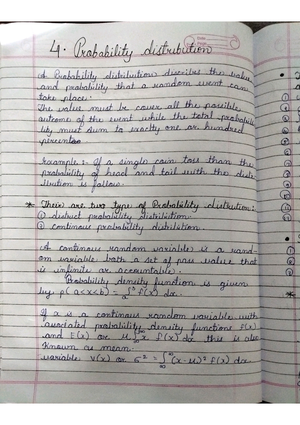 4. Probability distribution
A Probability distribution describes the value
and probability that a random event can
take place.
The value must be cover all the possible
outcome of the event while the total probabi
lity must sum to exactly one or hundred
percent
Example : If a single coin toss than the
probability of head and tail with the distri
bution is follow.
* Their are two type of Probability distribution:
① distruct probability distribution.
② continous probability distribution.
A continous random variable is a rand-
om variable both a set of pos value that
is infinite or accountable.
Probability density function is given
by P( a<x<b) = ∫ f(x) dx.
If a is a continous random variable with
associated probability density functions f(x)
and E(x) or μ ∫ x f(x) dx this is also
known as mean.
variable V(x) or σ² = ∫ (x-μ)² f(x) dx